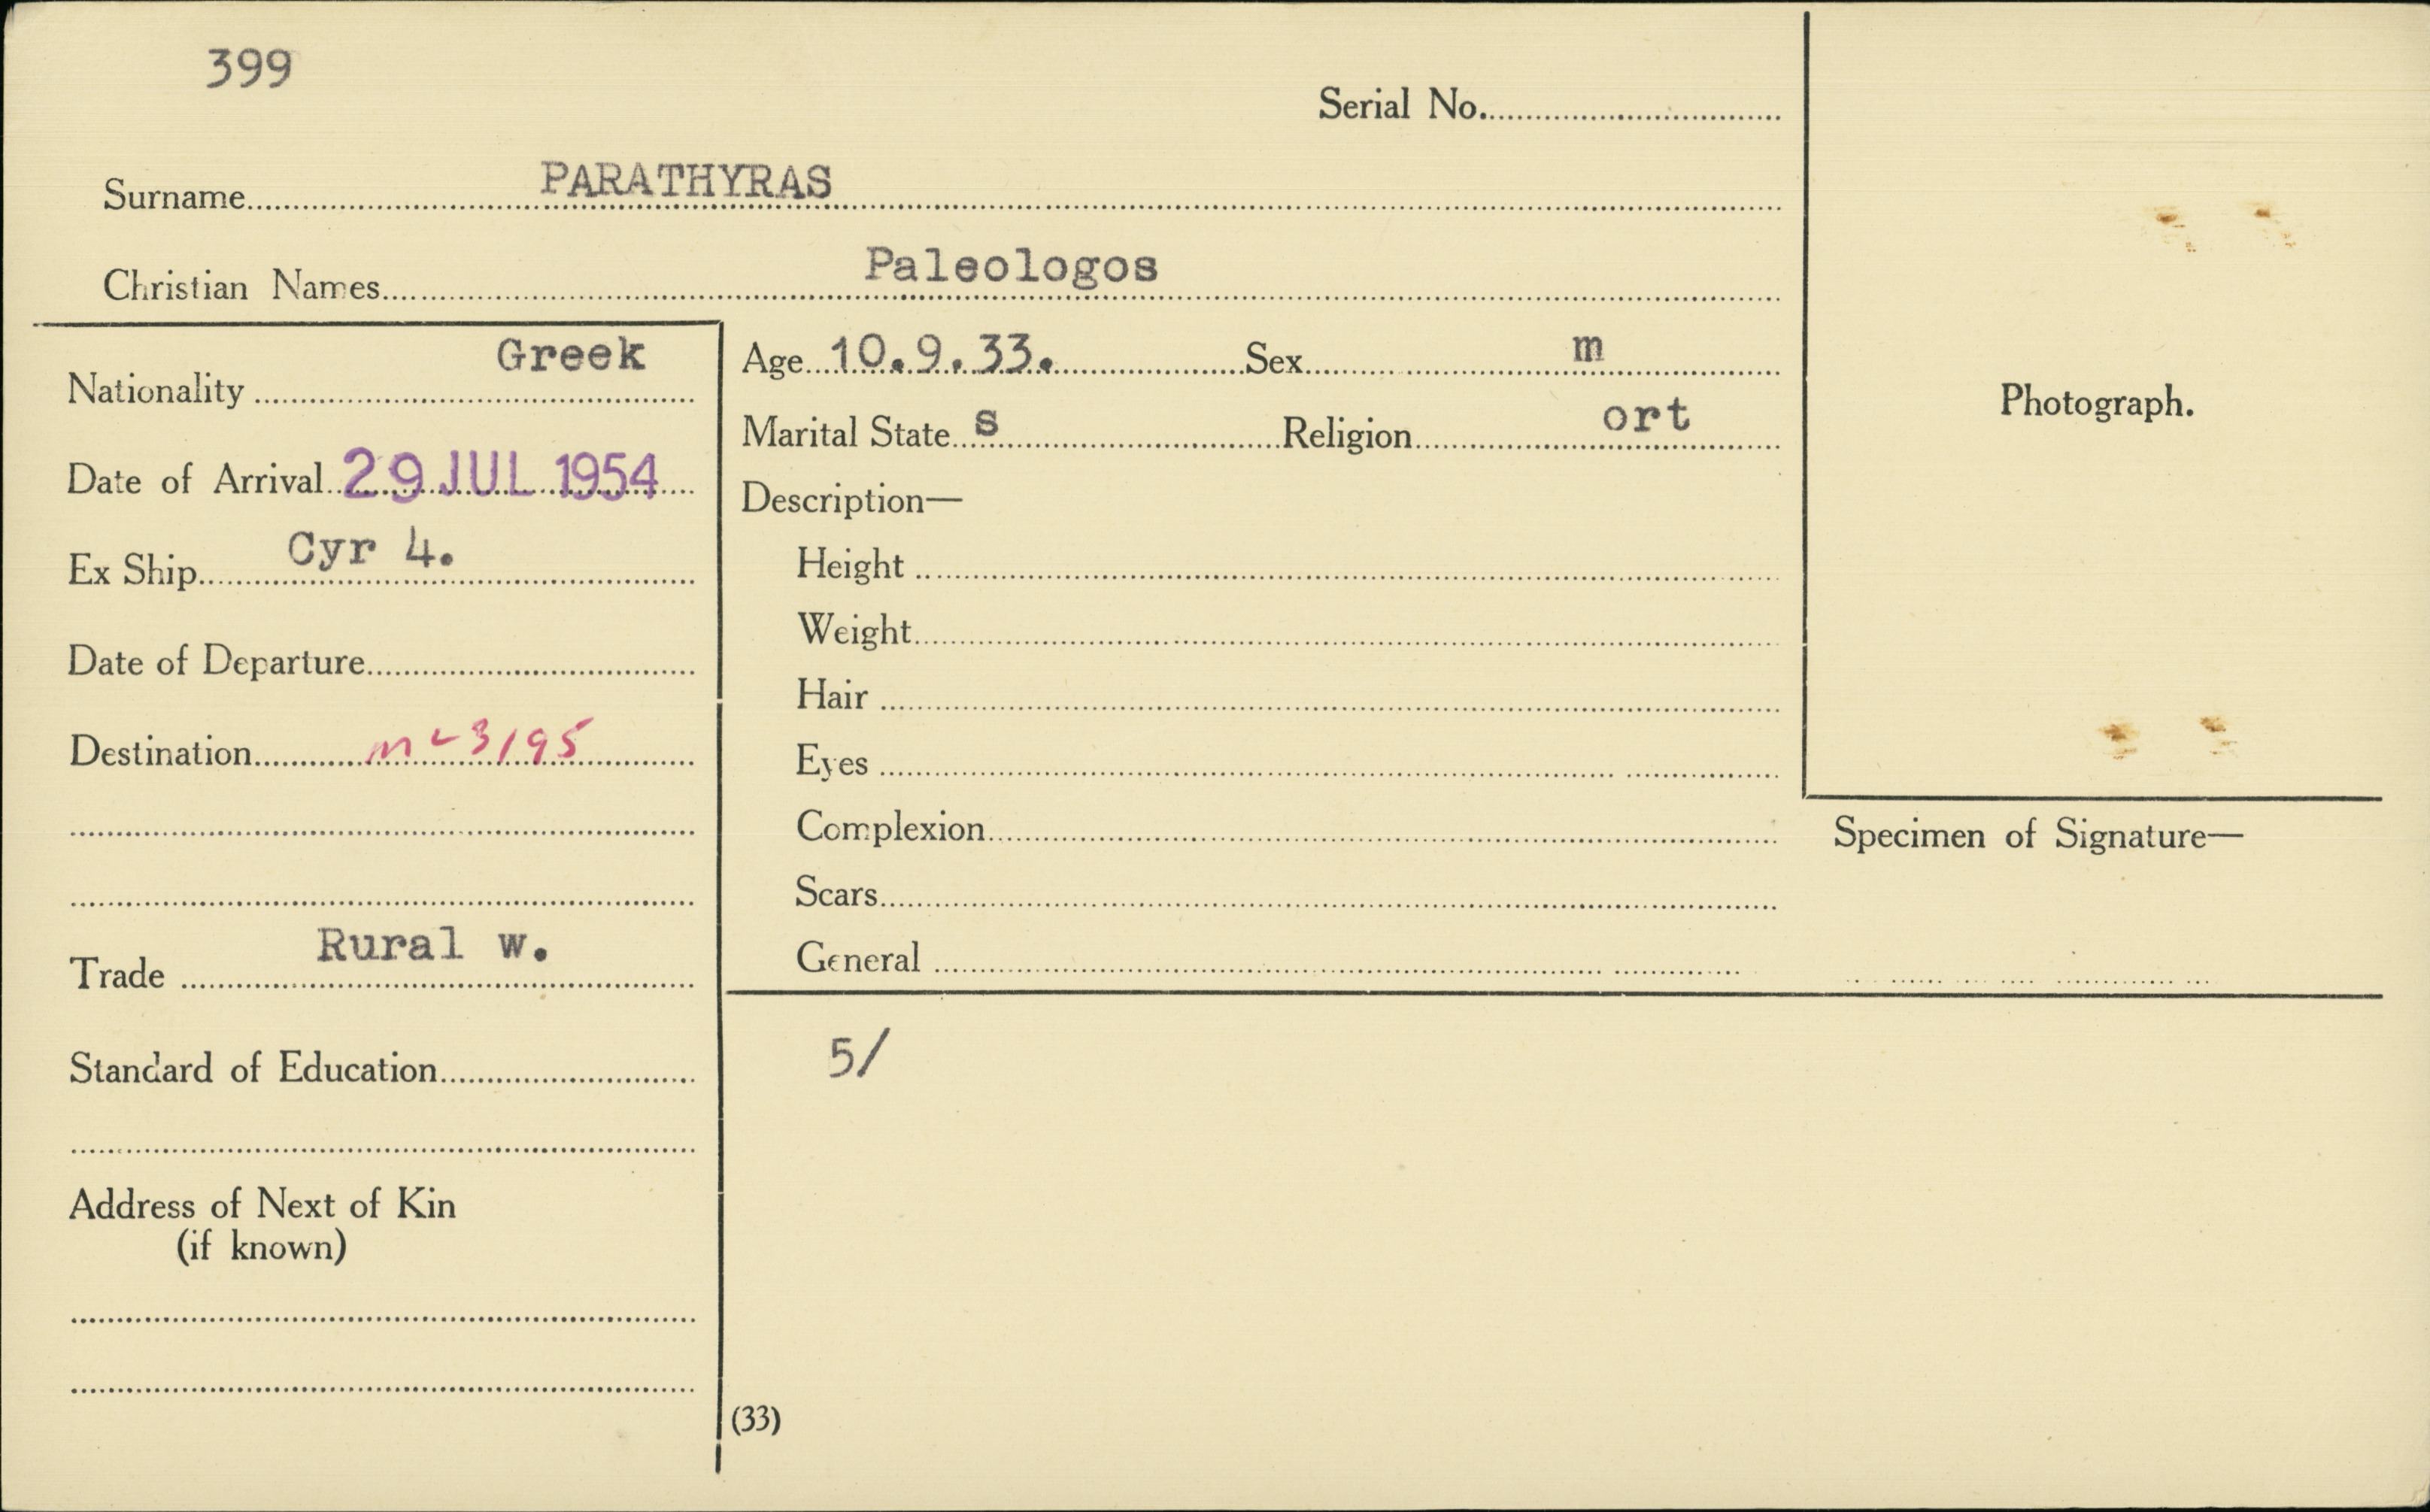 399
Serial No.
Surname PARATHYRAS
Christian Names Paleologos
Nationality Greek
Date of Arrival 29 JUL 1954
Ex Ship Cyr 4.
Date of Departure
Destination m 3195
Trade Rural w.
Standard of Education
Address of Next of Kin
(if known)
Age 10.9.33. Sex m
Marital State s Religion ort
Description—
Height
Weight
Hair
Eyes
Complexion
Scars
General
Photograph.
Specimen of Signature—
5/
(33)